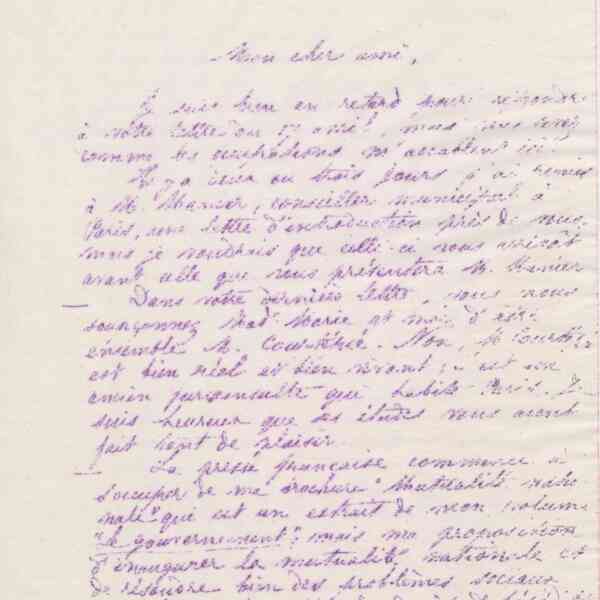 Mon cher ami,
Je suis bien en retard pour répondre
à votre lettre du 17 avril, mais vous savez
comme les occupations m'accablent ici!
Il y a deux ou trois jours j'ai remis
à M. Manier, conseiller municipal à
Paris, une lettre d'introduction près de vous,
mais je voudrais que celle-ci vous arrivât
avant celle que vous présentera M. Manier
— Dans votre dernière lettre, vous nous
soupçonnez Mad. Marie et moi, d'être
ensemble M. Non, M.
est bien réel et bien vivant; c'est un
ancien jurisconsulte qui habite Paris. Je
suis heureux que ses études vous aient
fait tant de plaisir.
— La presse française commence à
s'occuper de ma brochure "Mutualité natio
nale" qui est un extrait de mon volume
"le gouvernement"; mais ma proposition
d'inaugurer la mutualité nationale et
de résoudre bien des problèmes sociaux